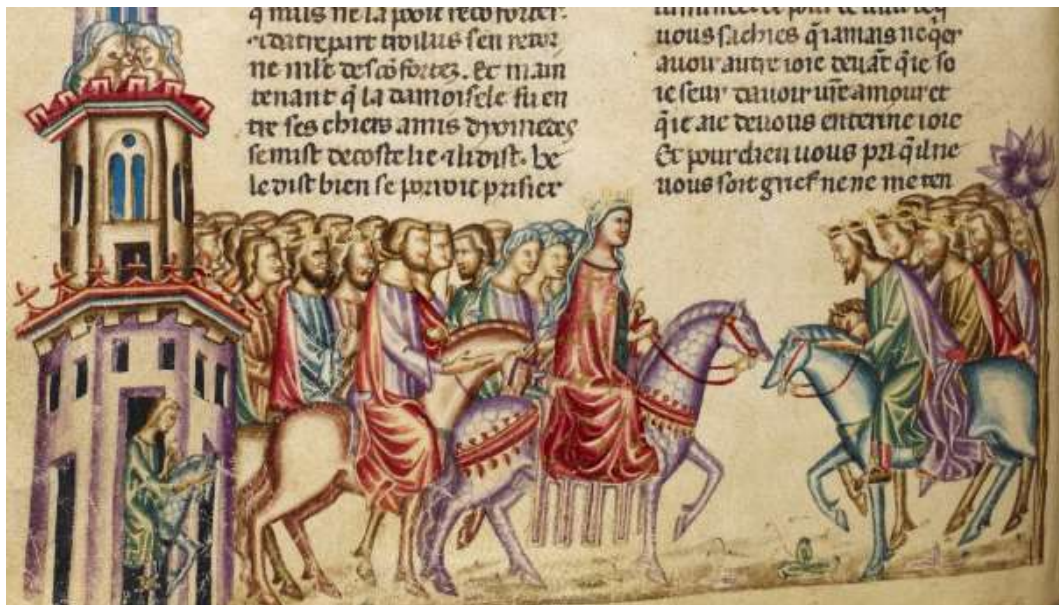 q̃ nus ne la pooit recõforter.
⁊ datre part troilus sen retor
ne mlt̃ descõfortez. Et main
tenant q̃ la damoisele fu en
tre ses chiers amis dyomedes
se mist decoste lie ⁊ li dist. be
le dist bien se poroit prisier
uous sachies q̃ iamais ne q̃er
auoir autre ioie deuãt q̃ ie so
ie seur dauoir ur̃e amour et
q̃ ie aie de uous enterine ioie
Et pour dieu uous pri q̃ il ne
uous soit grief ne ne me ten